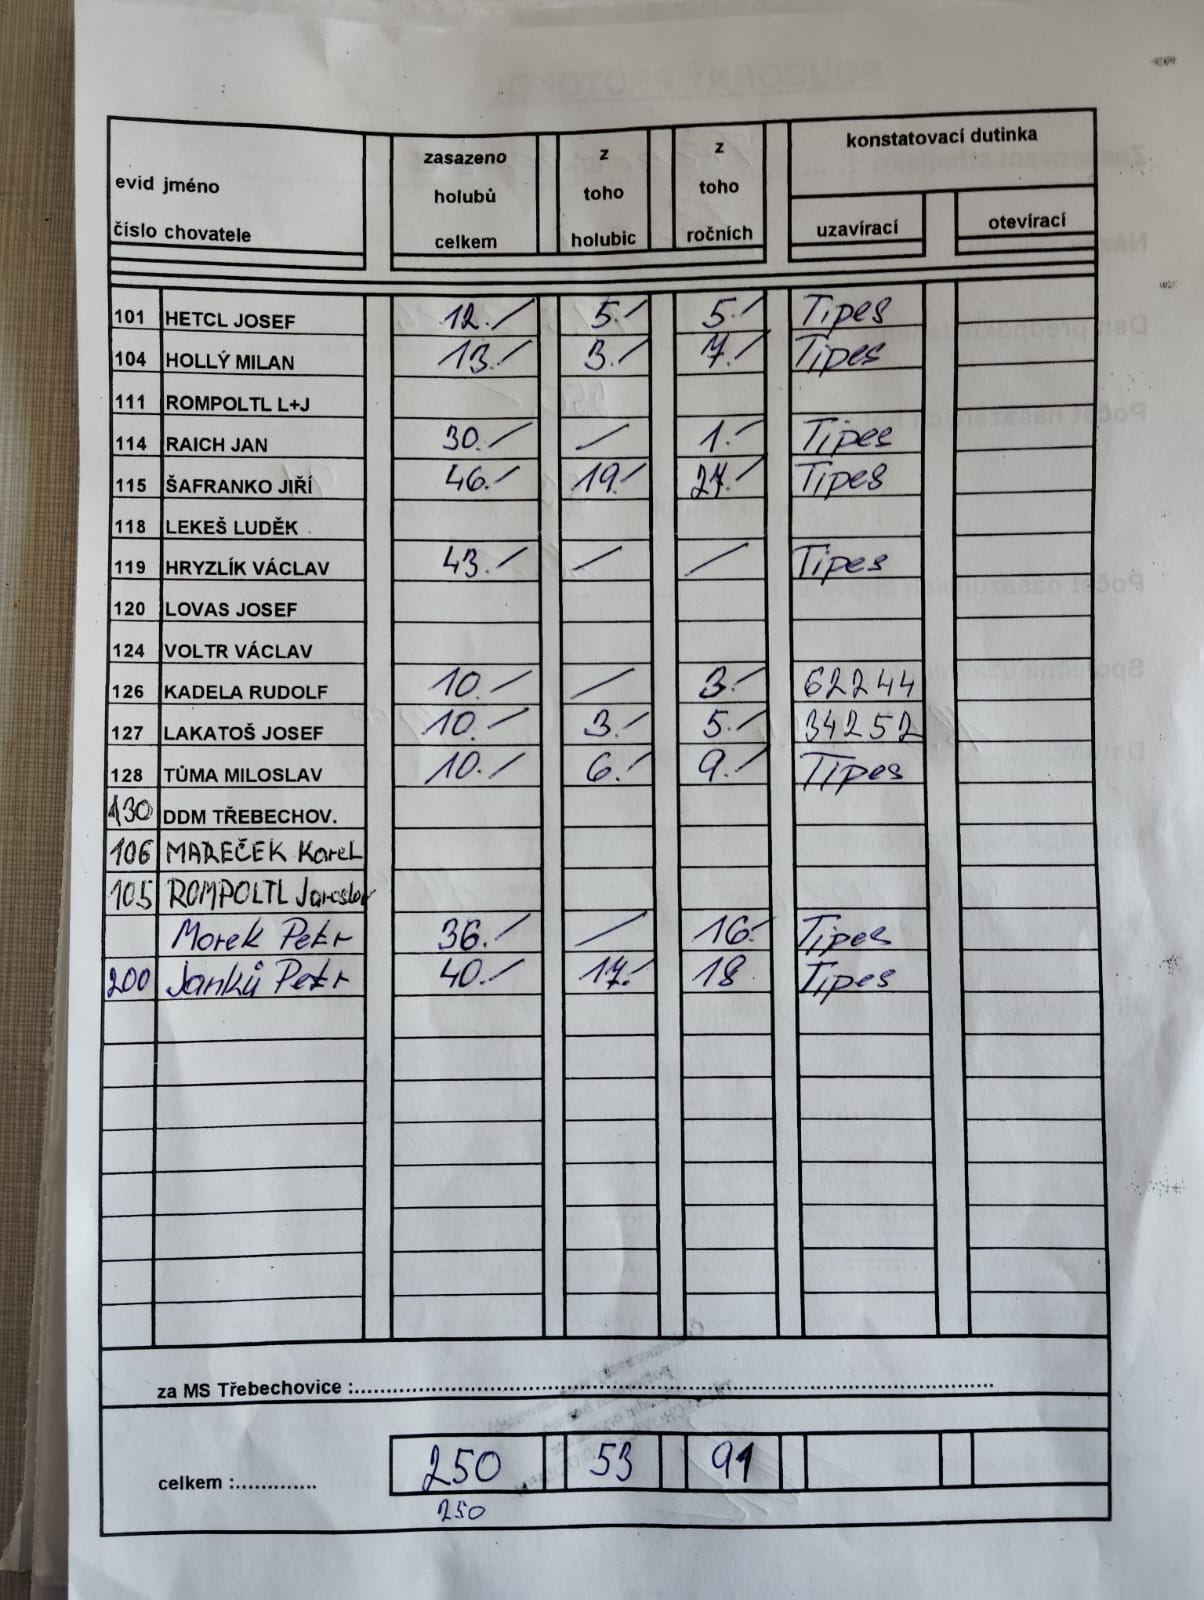 evid jméno
číslo chovatele
zasazeno holubů celkem
z toho holubic
z toho ročních
konstatovací dutinka
uzavírací
otevírací
101 HETCL JOSEF 12.⁄ 5.⁄ 5.⁄ Tipes
104 HOLLÝ MILAN 13.⁄ 3.⁄ 7.⁄ Tipes
111 ROMPOLTL L+J
114 RAICH JAN 30.⁄ ⁄ 1.⁄ Tipes
115 ŠAFRANKO JIŘÍ 46.⁄ 19.⁄ 27.⁄ Tipes
118 LEKEŠ LUDĚK
119 HRYZLÍK VÁCLAV 43.⁄ ⁄ ⁄ Tipes
120 LOVAS JOSEF
124 VOLTR VÁCLAV
126 KADELA RUDOLF 10.⁄ ⁄ 3.⁄ 62244
127 LAKATOŠ JOSEF 10.⁄ 3.⁄ 5.⁄ 34252
128 TŮMA MILOSLAV 10.⁄ 6.⁄ 9.⁄ Tipes
130 DDM TŘEBECHOV.
106 MAREČEK Karel
105 ROMPOLTL Jaroslav
Morek Petr 36.⁄ ⁄ 16.⁄ Tipes
200 Janků Petr 40.⁄ 17.⁄ 18 Tipes
za MS Třebechovice :..........
celkem :............. 250 53 91
250